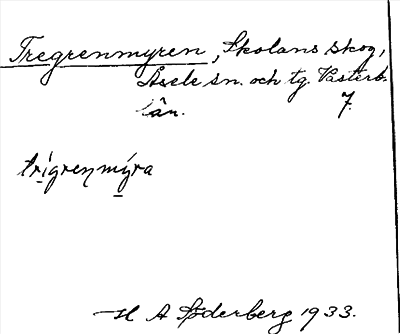 Tregrenmyren, Skolans skog,
Åsele sn. och tg. Västerb.
län. 7.
trígreƞmýra
H A Söderberg 1933.